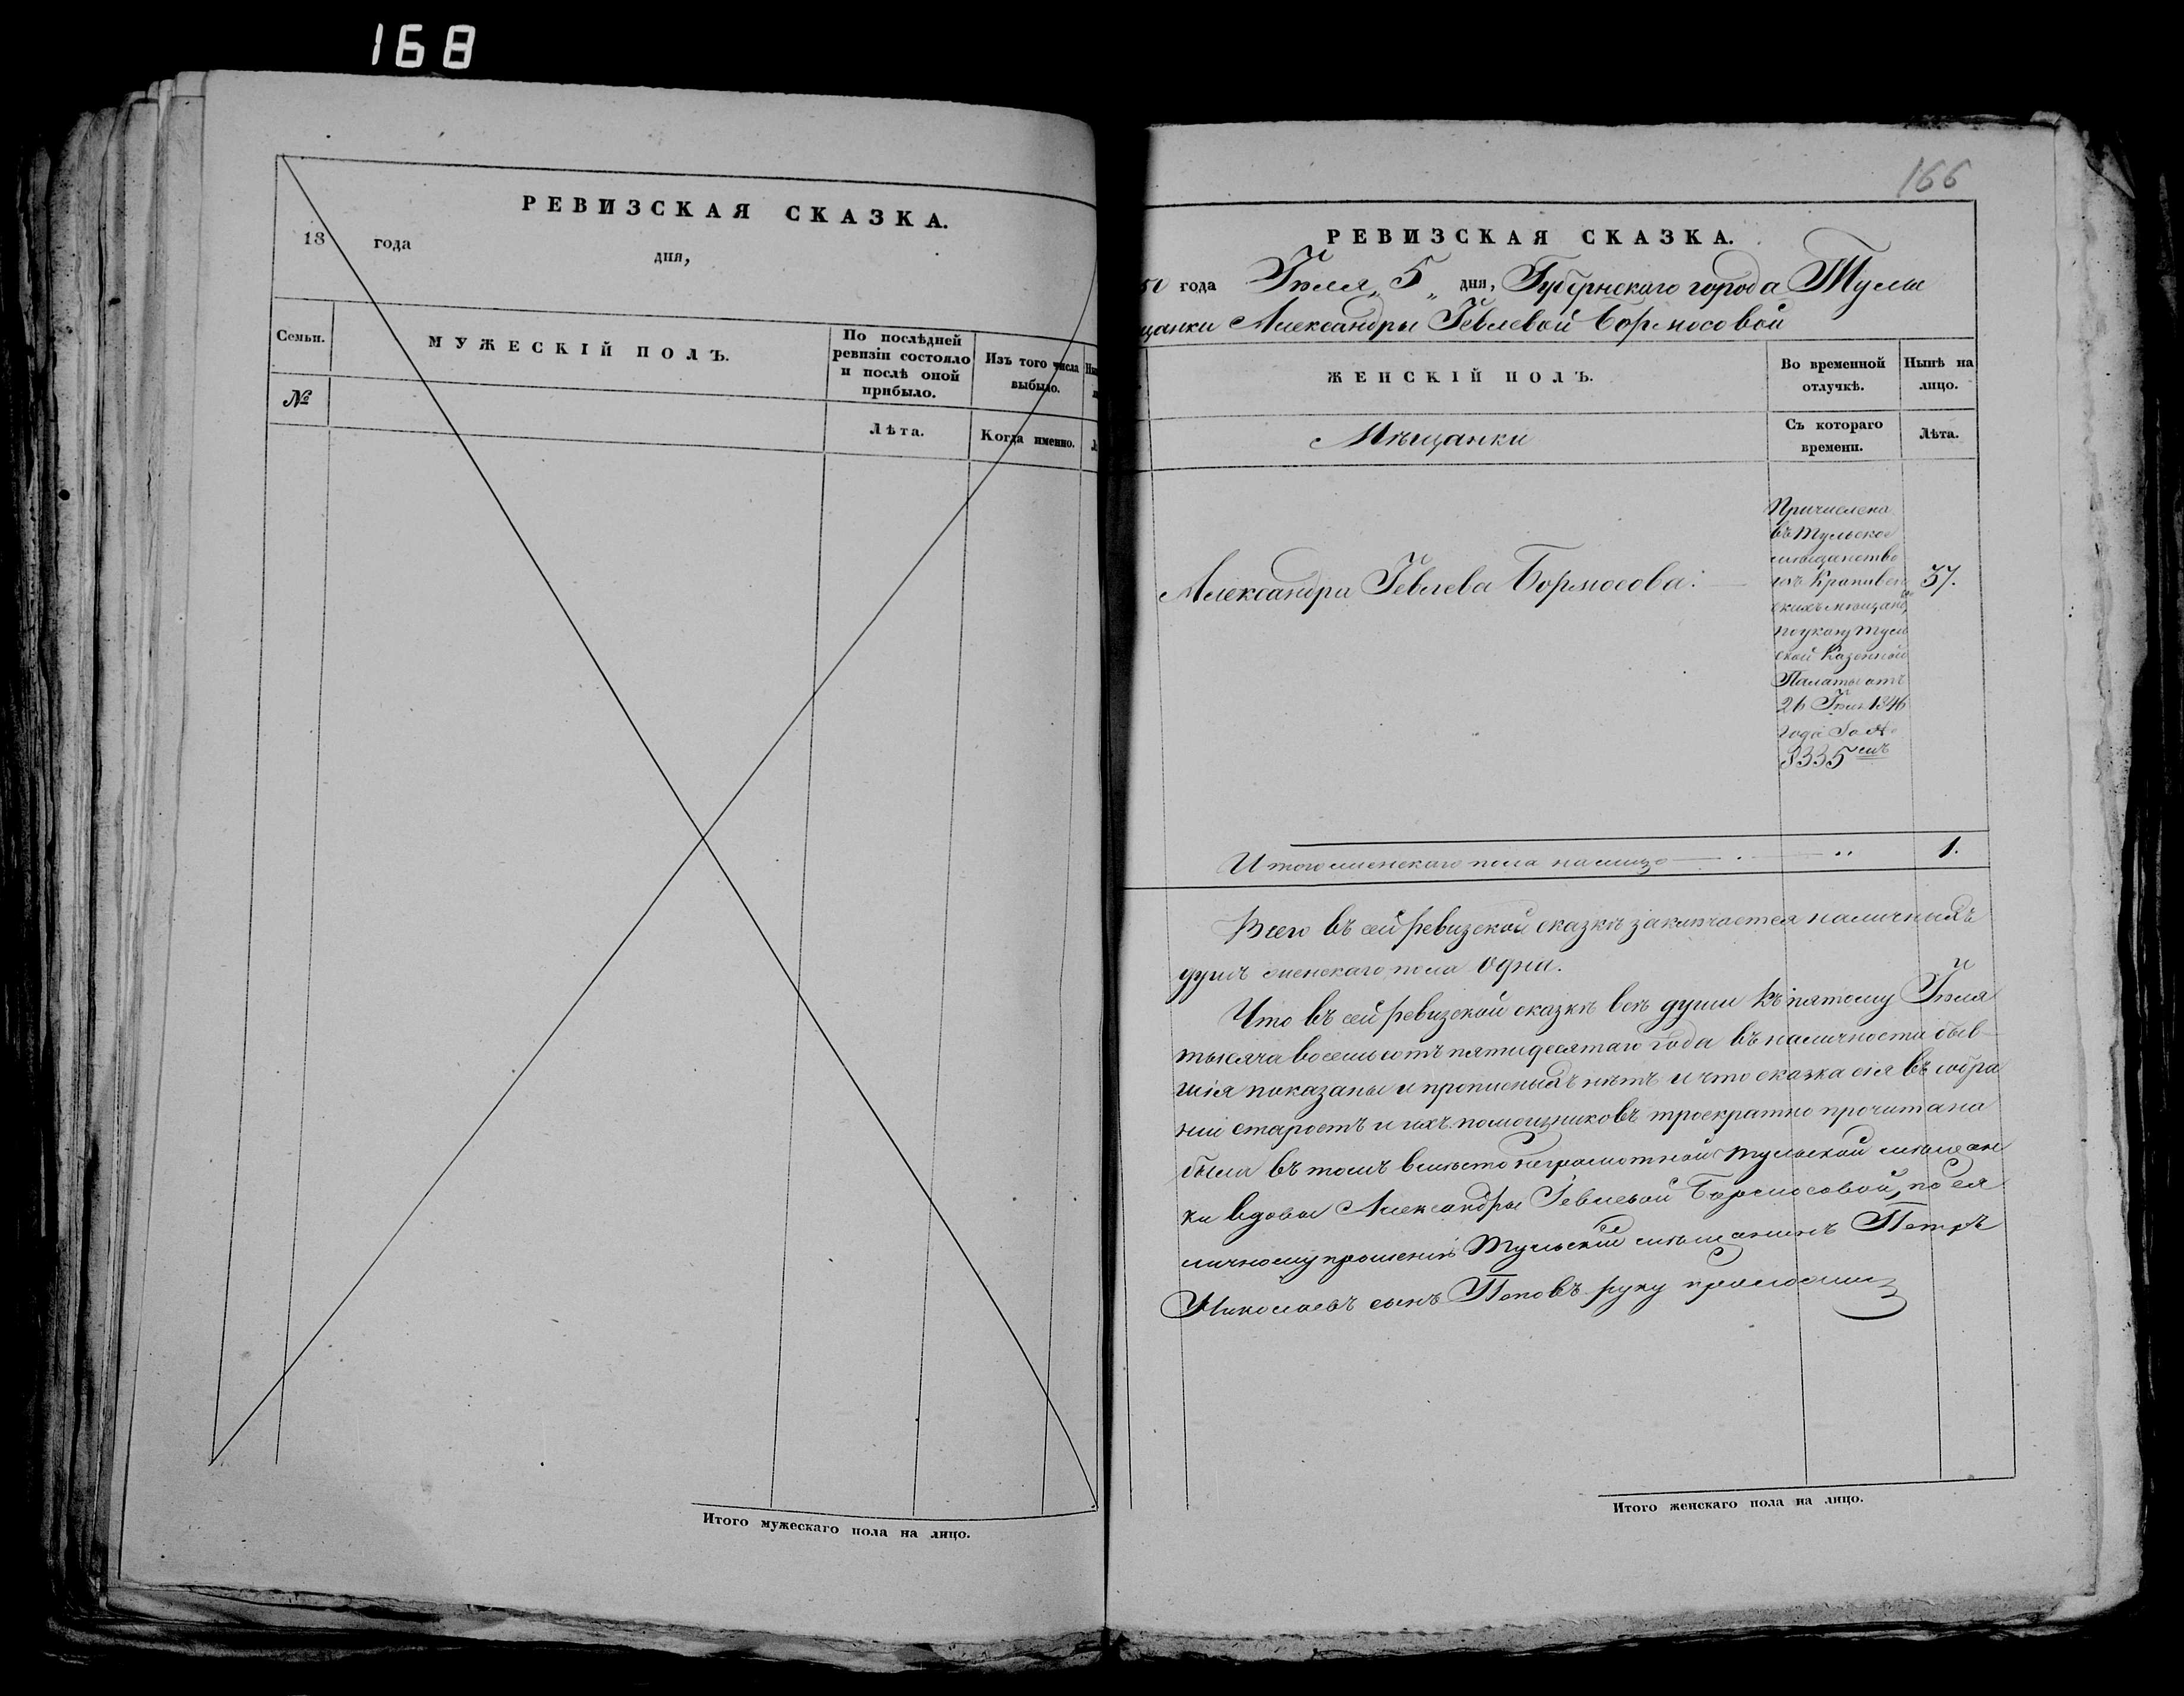 168
РЕВИЗСКАЯ СКАЗКА.
18 года дня,
Семьи.
МУЖЕСКІЙ ПОЛЪ.
По послѣдней
ревизіи состояло
и послѣ оной
прибыло.
Изъ того числа
выбыло.
№
Лѣта.
Когда именно.
Итого мужескаго пола на лицо.
166
РЕВИЗСКАЯ СКАЗКА.
50 года Іюля „5„ дня, Губернскаго города Тулы
щанки Александры Іевлевой Бормосовой
ЖЕНСКІЙ ПОЛЪ.
Во временной
отлучкѣ.
Нынѣ на
лицо.
Мѣщанки
Съ котораго
времени.
Лѣта.
Александра Іевлева Бормосова.
Причислена
въ Тульское
мѣщанство
изъ Крапивен
скихъ мѣщанъ
по указу Туль
ской Казенной
Палаты отъ
26 1846
года За №
8335мъ
37.
Итого женскаго пола на лицо 1.
Всего въ сей ревизской сказкѣ заключается наличныхъ
душъ женскаго пола одна.
Что въ сей ревизской сказкѣ всѣ души къ пятому Іюля
тысяча восемьсотъ пятидесятаго года въ наличности быв-
шія показаны и прописныхъ нѣтъ и что сказка сія въ собра
ніи старостъ и ихъ помощниковъ троекратно прочитана
была въ томъ вмѣсто неграмотной Тульской мѣщан
ки вдовы Александры Іевлевой Бормосовой, по ея
личному прошенію Тульскій мѣщанинъ Петръ
Николаевъ сынъ Поповъ руку приложилъ
Итого женскаго пола на лицо.